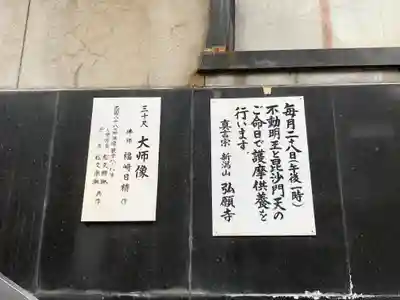 毎月二十八日(午後一時)
不動明王と毘沙門天の
ご命日で護摩供養を
行います。
真言宗 新潟山 弘願寺
三十尺 大师像
福崎日精 作